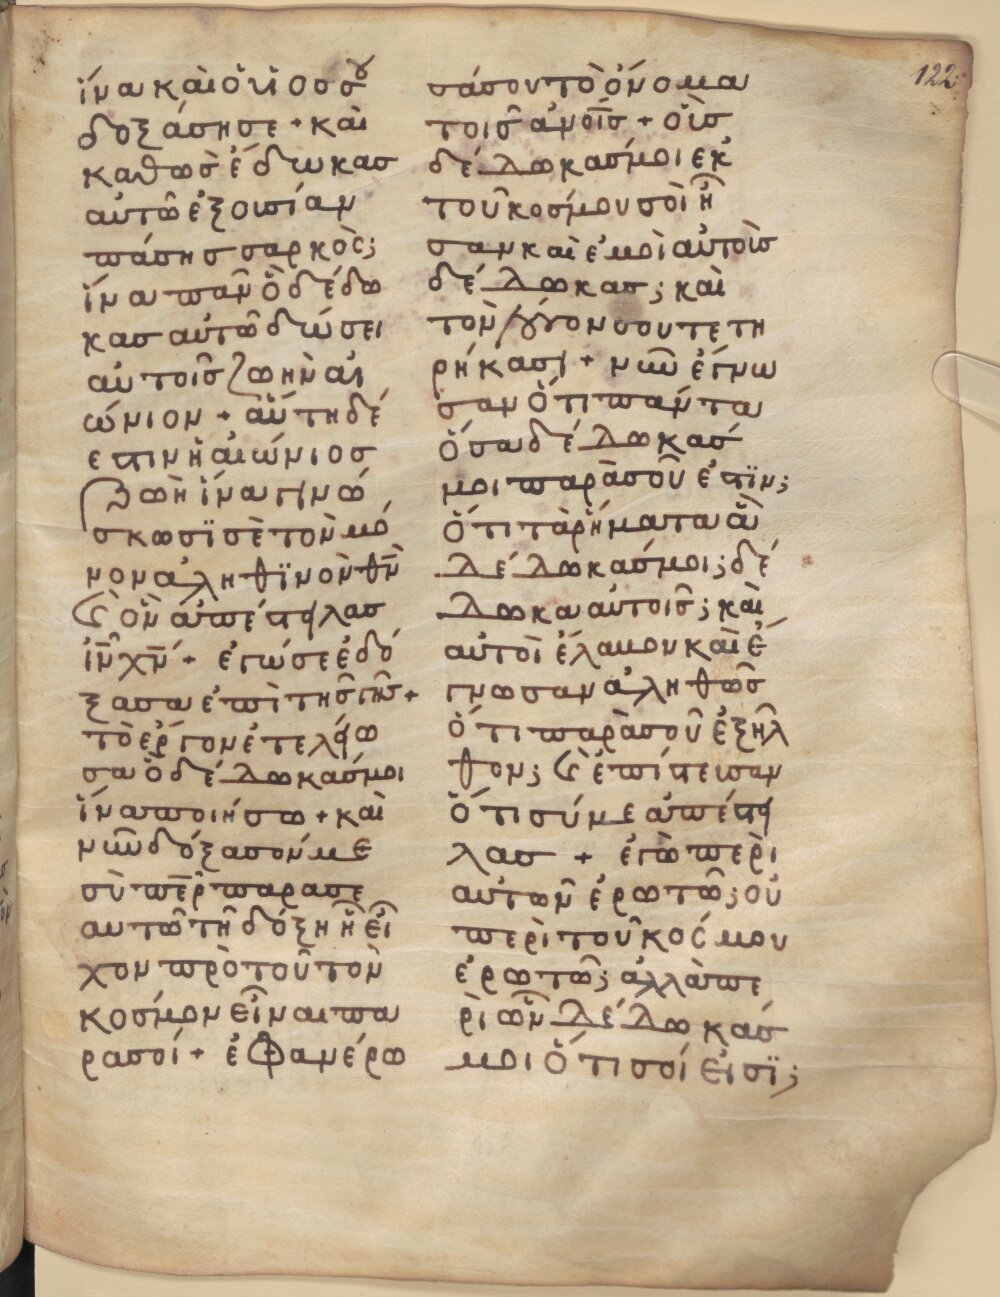 122
ἵνα καὶ ὁ ὑιὸσ σου
δοξάσησε + καὶ
καθὼσ ἔδωκασ
αὐτῶ ἐξουσίαν
πάσησ σαρκὸς;
ἵνα πᾶν ὃ δέδω
κασ αὐτῶ δώσει
αὐτοῖσ ζωὴν αἰ
ώνιον + αὕτη δέ
εστιν ἡ αἰώνιοσ
ζωὴ ἵνα γινώ
σκωσϊ σὲ τὸν μό
νον ἀληθϊνὸν θν̅
καὶ ὃν ἀπέστειλασ
ιν̅ χν̅ + ἐγώ σε ἐδό
ξασα ἐπὶ τῆσ γῆσ +
τὸ ἔργον ἐτελείω
σα ὃ δέδωκασ μοι
ἵνα ποιήσω + καὶ
νῦν δόξασον με
σὺ πε̅ρ παρα σε
αυτῶ τῆ δόξη ἧ εἶ
χον πρὸ τοῦ τὸν
κόσμον εἶναι πα
ρα σοί + ἐφανέρω
σά σου τὸ ὄνομα
τοῖσ ἀνοῖσ + οὓσ
δέδωκασ μοι εκ
τοῦ κόσμου σοὶ ἦ
σαν καὶ ἐμοὶ αὐτοὺσ
δέδωκασ; καὶ
τὸν λόγον σου τετη
ρήκασι + νῦν ἔγνω
σαν ὅτι πάντα
ὅσα δέδωκασ
μοι παρὰ σοῦ ἐστϊν;
ὅτι τὰ ῥήματα ἃ
δέδωκασ μοι; δέ
δωκα αὐτοῖσ; καὶ
αὐτοὶ ἔλαβον καὶ ἔ
γνωσαν ἀληθῶσ
ὅτι παρὰ σοῦ ἐξῆλ
θον; καὶ ἐπίστευσαν
ὅτι σύ με ἀπέστει
λασ + ἐγὼ περὶ
αὐτῶν ἐρωτῶ; οὐ
περὶ τοῦ κόςμου
ἐρωτῶ; ἀλλὰ πε
ρὶ ὧν δέδωκάσ
μοι ὅτι σοί εἰσϊ;